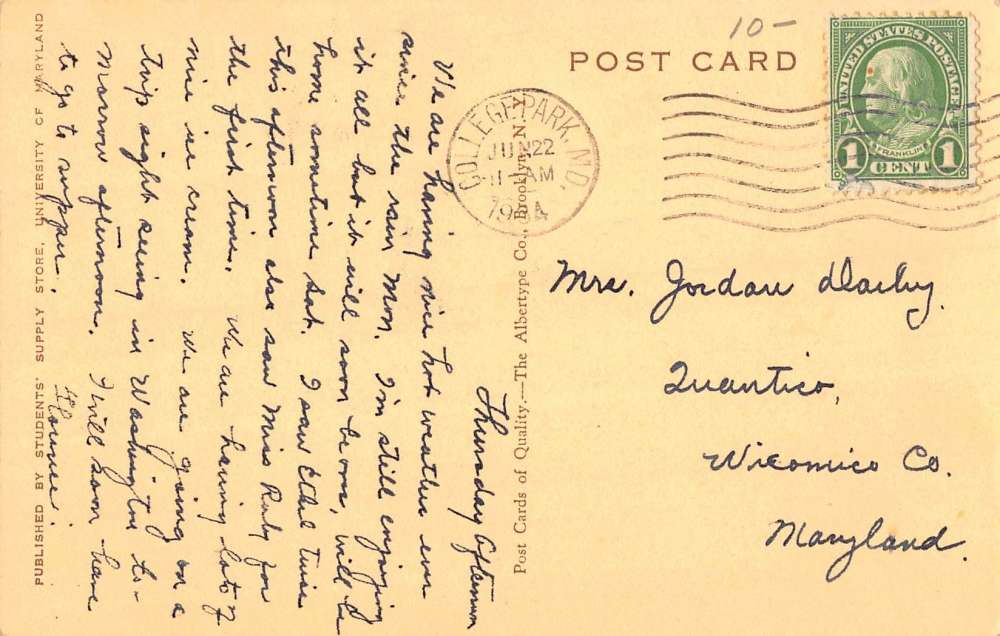 10-
POST CARD
COLLEGE PARK, MD.
JUN 22
11 AM
1934
UNITED STATES POSTAGE
FRANKLIN
1 CENT 1
Mrs. Jordan Darby,
Quantico,
Wicomico Co.
Maryland.
Thursday Afternoon
We are having nice hot weather ever
since the rain Mon. I'm still enjoying
it all but it will soon be over, will be
home sometime Sat. I saw Ethel twice
this afternoon also saw Miss Ruby for
the first time. We are having lots of
nice ice cream. We are going on a
trip sight seeing in Washington to-
morrow afternoon. I will soon have
to go to supper.
Post Cards of Quality.—The Albertype Co., Brooklyn, N.Y.
PUBLISHED BY STUDENTS' SUPPLY STORE, UNIVERSITY OF MARYLAND